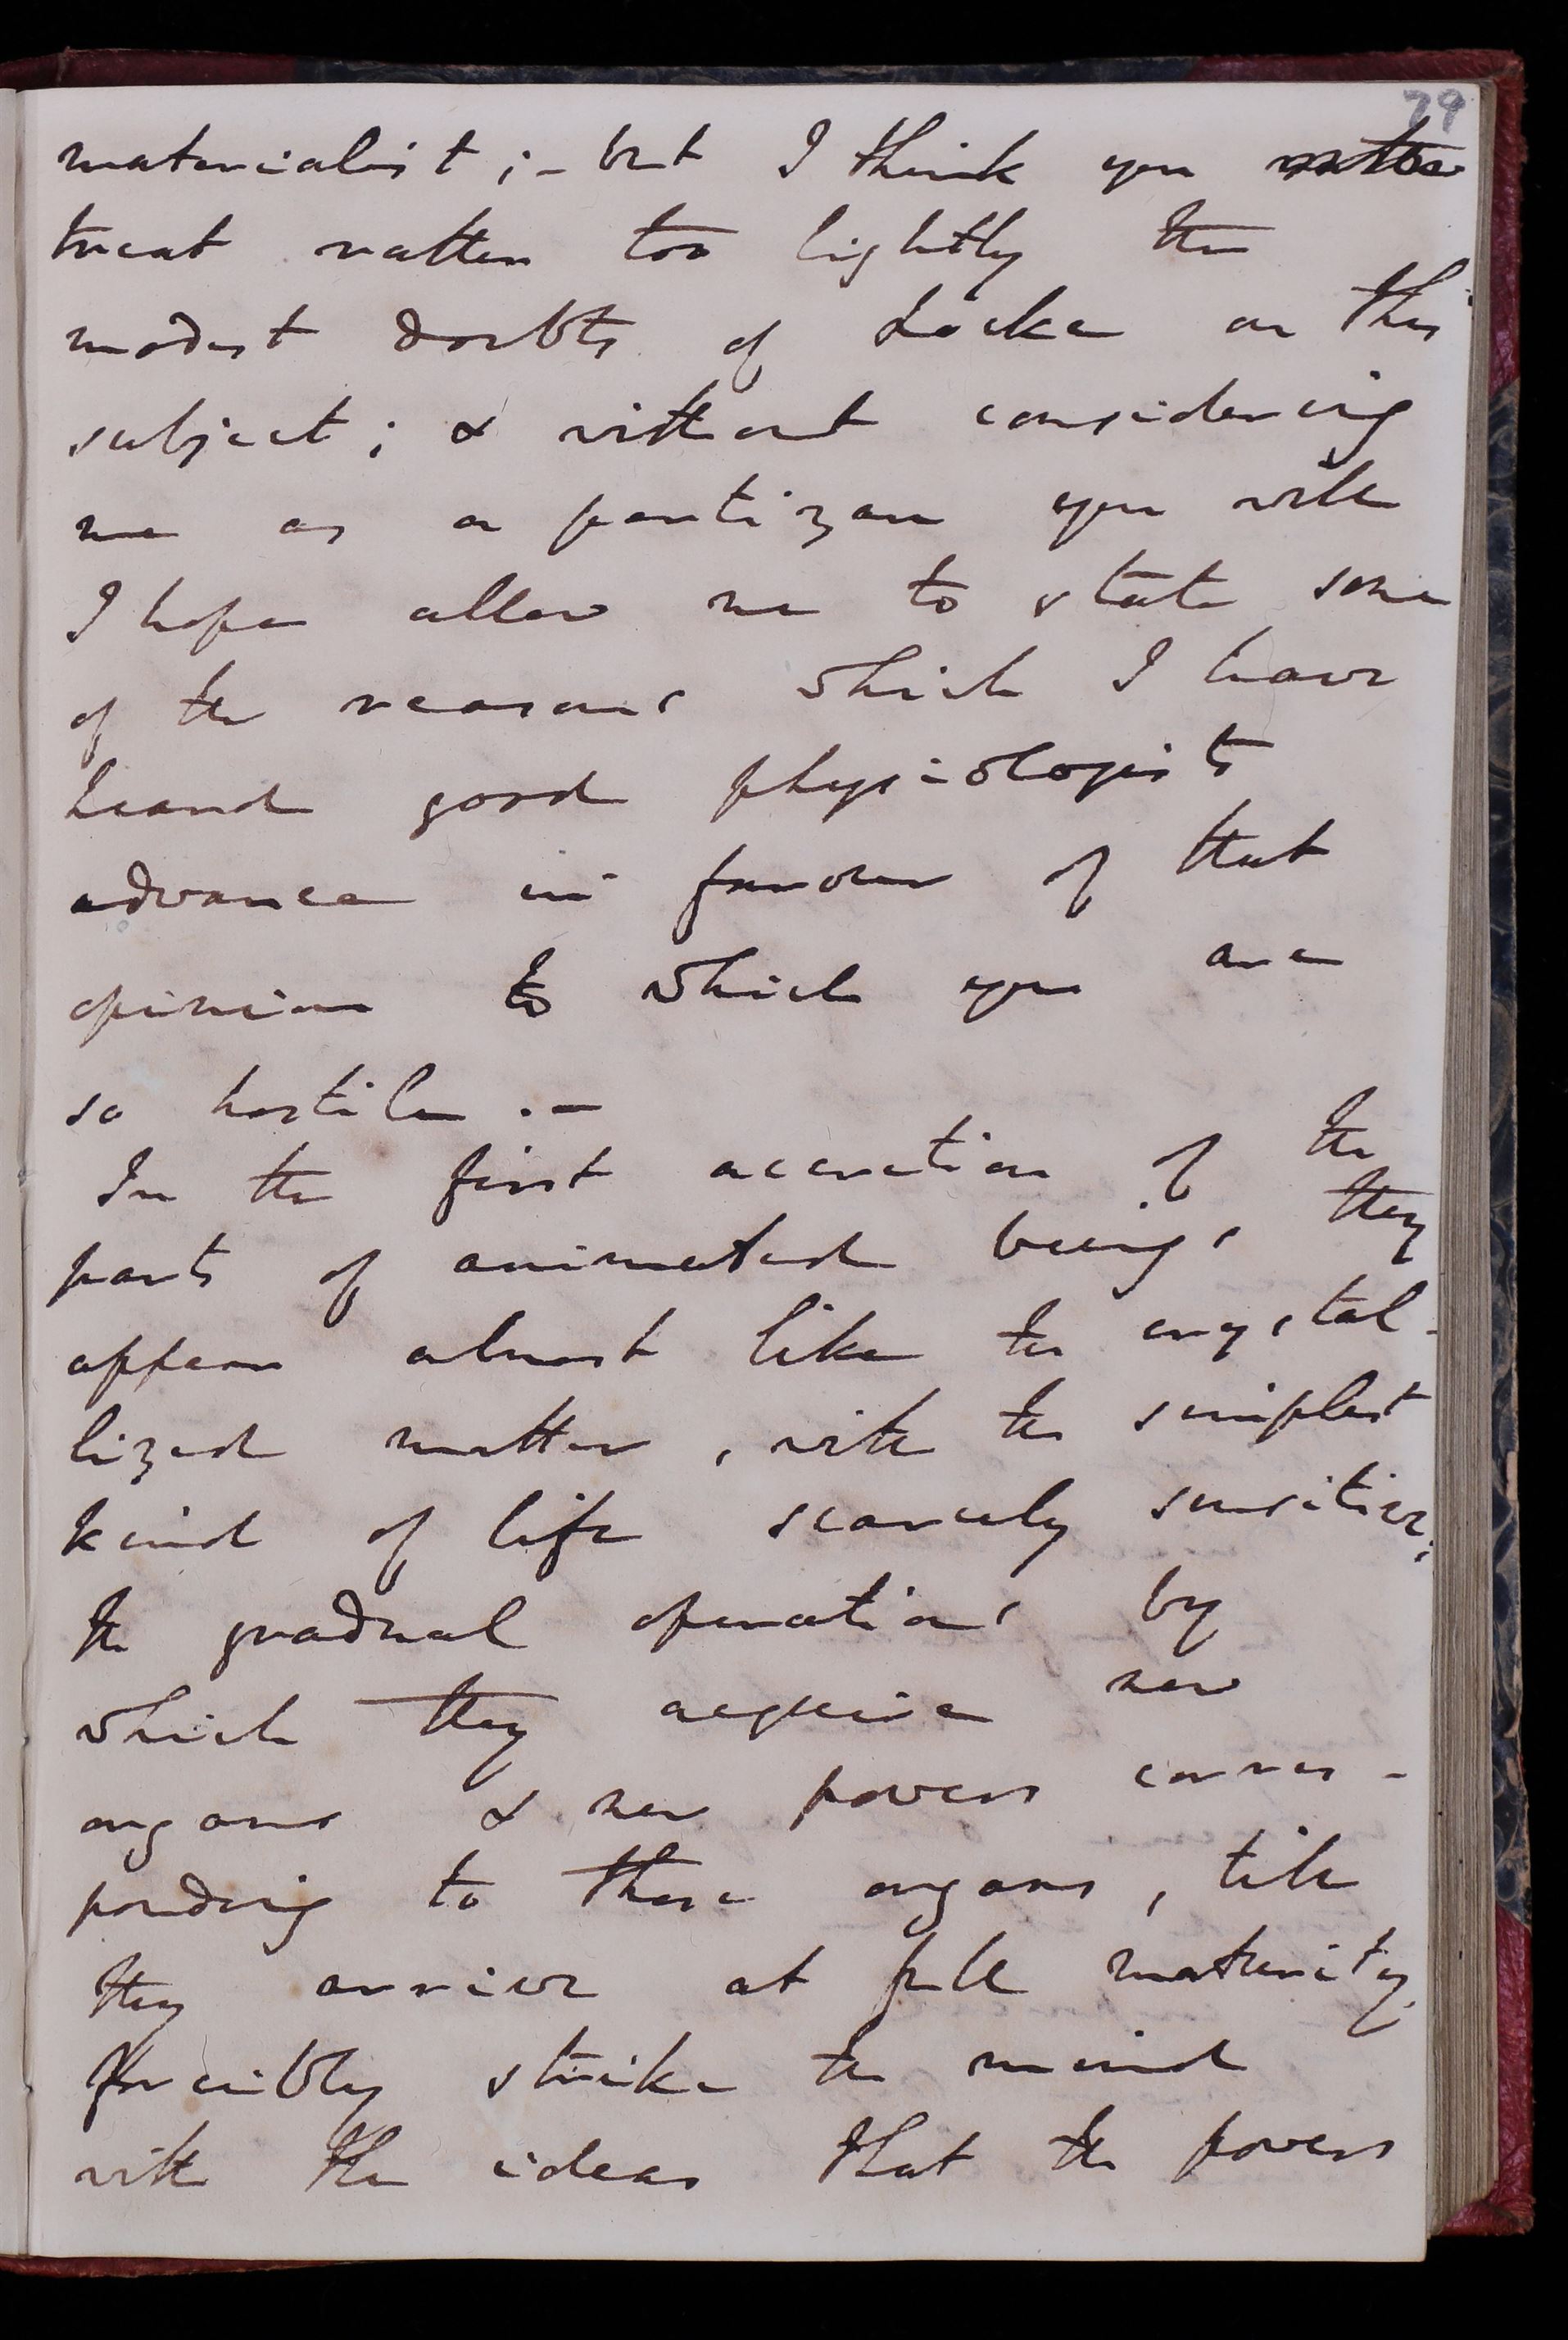 79
materialist; - but I think you
treat rather too lightly the
modest doubts of Locke on this
subject; & without considering
me as a partizan you will
I hope allow me to state some
of the reasons which I have
heard good physiologists
advance in favour of that
opinion to which you are
so hostile. -
In the first accretion of the
parts of animated beings they
appear almost like the crystal-
lized matter, with the simplest
kind of life scarcely sensitive;
the gradual operations by
which they acquire new
organs & new powers corres-
ponding to these organs, till
they arrive at full maturity,
forcibly strike the mind
with the ideas that the powers